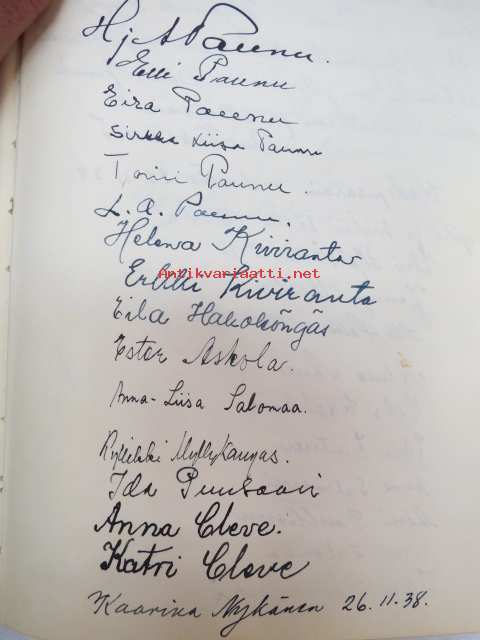 Hj A Paunu.
Elli Paunu
Eira Paunu
Sirkka Liisa Paunu
Toini Paunu.
L. A. Paunu.
Helena Kiviranta
Erkki Kiviranta
Antikvariaatti.net
Eila Hakoköngäs
Ester Askola.
Anna-Liisa Salomaa.
Myllykangas.
Ida Puusaari
Anna Cleve.
Katri Cleve
Kaarina Nykänen 26.11.38.